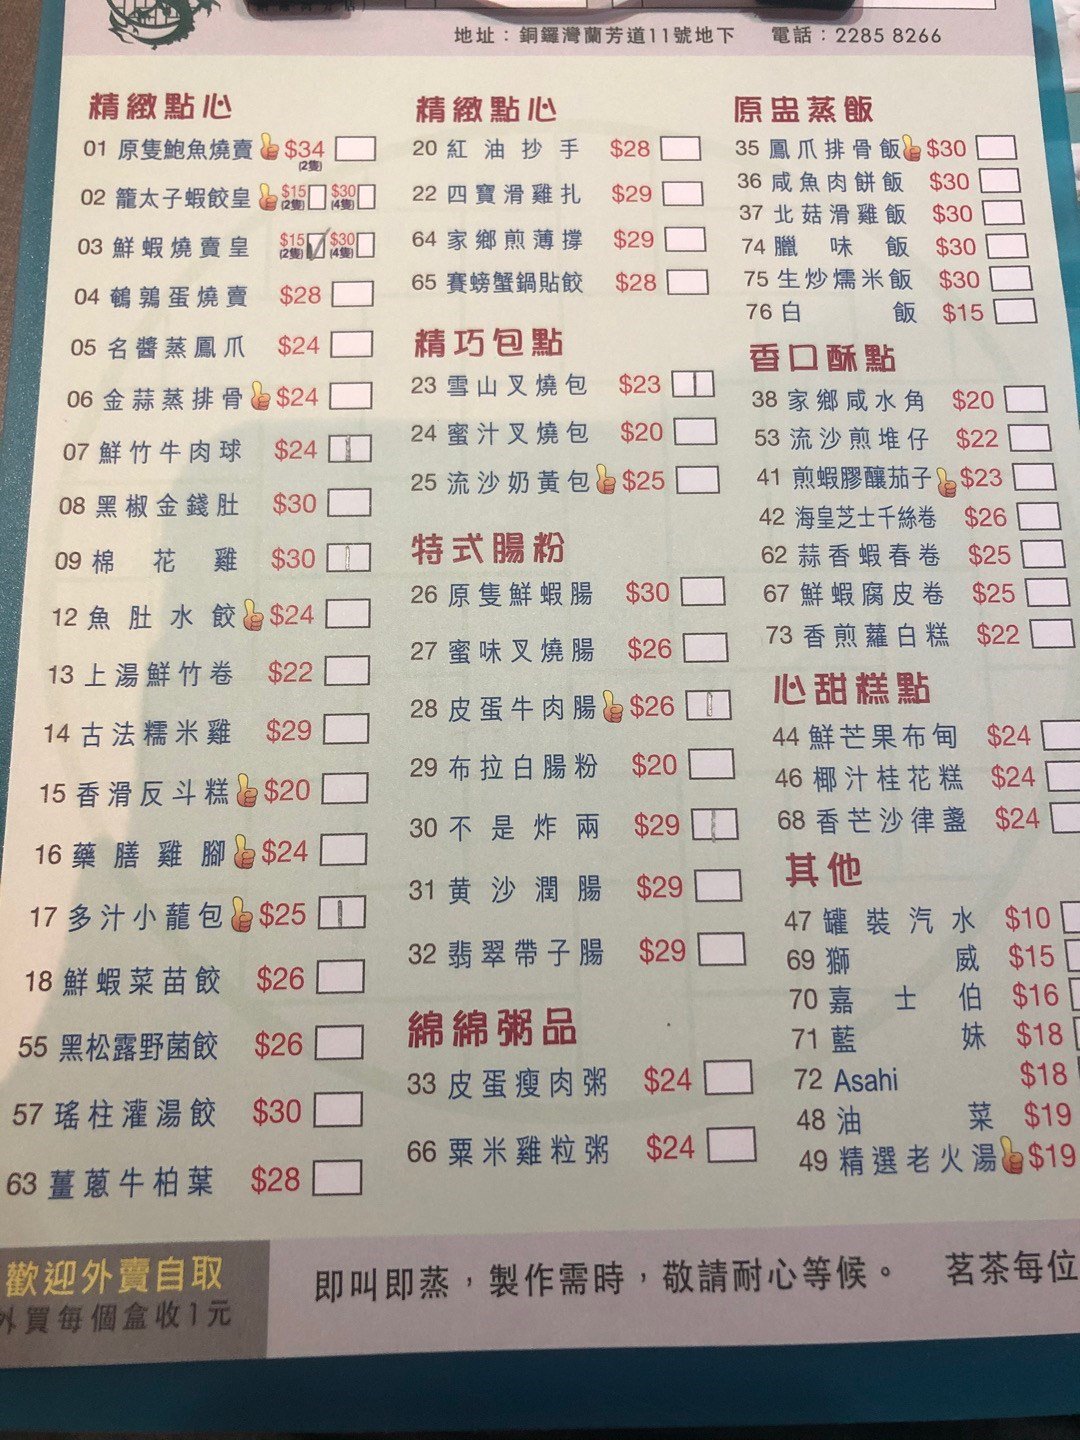 地址：銅鑼灣蘭芳道11號地下 電話：2285 8266
精緻點心
01 原隻鮑魚燒賣 $34 (2隻)
02 籠太子蝦餃皇 $15 (2隻) $30 (4隻)
03 鮮蝦燒賣皇 $15 (2隻) $30 (4隻)
04 鵪鶉蛋燒賣 $28
05 名醬蒸鳳爪 $24
06 金蒜蒸排骨 $24
07 鮮竹牛肉球 $24
08 黑椒金錢肚 $30
09 棉花雞 $30
12 魚肚水餃 $24
13 上湯鮮竹卷 $22
14 古法糯米雞 $29
15 香滑反斗糕 $20
16 藥膳雞腳 $24
17 多汁小蘢包 $25
18 鮮蝦菜苗餃 $26
55 黑松露野菌餃 $26
57 瑤柱灌湯餃 $30
63 薑蔥牛柏葉 $28
精緻點心
20 紅油抄手 $28
22 四寶滑雞扎 $29
64 家鄉煎薄撐 $29
65 賽螃蟹鍋貼餃 $28
精巧包點
23 雪山叉燒包 $23
24 蜜汁叉燒包 $20
25 流沙奶黃包 $25
特式腸粉
26 原隻鮮蝦腸 $30
27 蜜味叉燒腸 $26
28 皮蛋牛肉腸 $26
29 布拉白腸粉 $20
30 不是炸兩 $29
31 黄沙潤腸 $29
32 翡翠帶子腸 $29
綿綿粥品
33 皮蛋瘦肉粥 $24
66 粟米雞粒粥 $24
原盅蒸飯
35 鳳爪排骨飯 $30
36 咸魚肉餅飯 $30
37 北菇滑雞飯 $30
74 臘味飯 $30
75 生炒糯米飯 $30
76 白飯 $15
香口酥點
38 家鄉咸水角 $20
53 流沙煎堆仔 $22
41 煎蝦膠釀茄子 $23
42 海皇芝士千絲卷 $26
62 蒜香蝦春卷 $25
67 鮮蝦腐皮卷 $25
73 香煎蘿白糕 $22
心甜糕點
44 鮮芒果布甸 $24
46 椰汁桂花糕 $24
68 香芒沙律盞 $24
其他
47 罐裝汽水 $10
69 獅威 $15
70 嘉士伯 $16
71 藍妹 $18
72 Asahi $18
48 油菜 $19
49 精選老火湯 $19
歡迎外賣自取
外買每個盒收1元
即叫即蒸，製作需時，敬請耐心等候。 茗茶每位